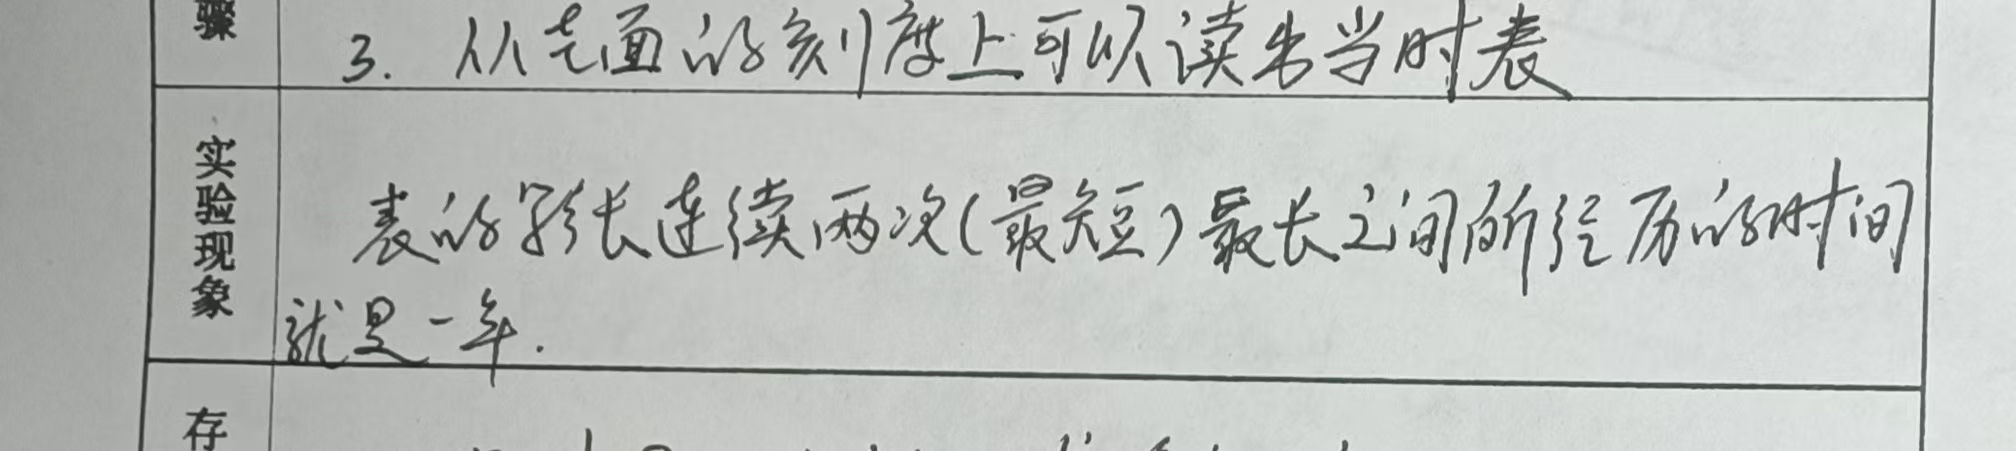 骤
3. 从圭面的刻度上可以读出当时表
实验现象
表的影长连续两次(最短)最长之间所经历的时间
就是一年.
存